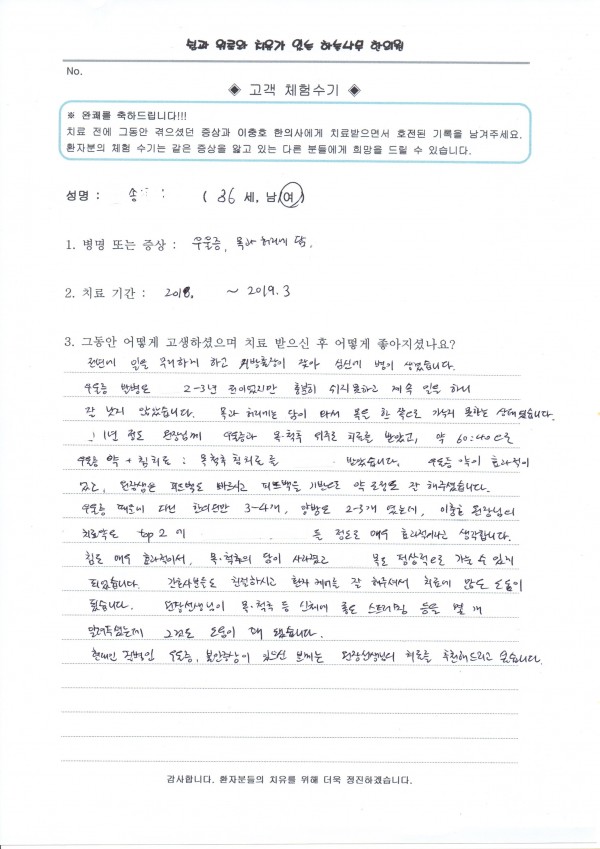 쉼과 위로와 치유가 있는 하늘나무 한의원
No.
◈ 고객 체험수기 ◈
※ 완쾌를 축하드립니다!!!
치료 전에 그동안 겪으셨던 증상과 이충호 한의사에게 치료받으면서 호전된 기록을 남겨주세요.
환자분의 체험 수기는 같은 증상을 앓고 있는 다른 분들에게 희망을 드릴 수 있습니다.
성명 : 송 ( 36 세, 남, 여 )
1. 병명 또는 증상 : 우울증, 목과 허리에 담.
2. 치료 기간 : 2018. ~ 2019.3
3. 그동안 어떻게 고생하셨으며 치료 받으신 후 어떻게 좋아지셨나요?
전년에 일을 하고 지방출장이 잦아 심신에 병이 생겼습니다.
우울증 발병은 2-3년 전이었지만 충분히 쉬지못하고 계속 일을 하니
잘 낫지 않았습니다. 목과 허리에는 담이 와서 목은 한 쪽으로 가누지 못하는 상태였습니다.
1년 정도 원장님께 우울증과 목·척추 위주로 치료를 받았고, 약 60:40으로
우울증 약 + 침치료 : 목척추 침치료를 받았습니다. 우울증 약이 효과적이
었고, 원장님은 피드백도 빠르시고 피드백을 기반으로 약 조정도 잘 해주셨습니다.
우울증 때문에 다닌 한의원만 3~4개, 양방도 2-3개 였는데, 이충호 원장님의
치료약은 top 2에 들 정도로 매우 효과적이라고 생각합니다.
침도 매우 효과적이어서, 목·척추의 담이 사라졌고 목도 정상적으로 가눌 수 있게
되었습니다. 간호사분들도 친절하시고 환자 케어를 잘 해주셔서 치료에 많은 도움이
됐습니다. 원장선생님이 목·척추 등 신체에 좋은 스트레칭 등을 몇 개
알려주셨는데 그것도 도움이 돼 됐습니다.
현대인 직병인 우울증, 불안증상이 있으신 분께는 원장선생님의 치료를 추천해드리고 싶습니다.
감사합니다. 환자분들의 치유를 위해 더욱 정진하겠습니다.